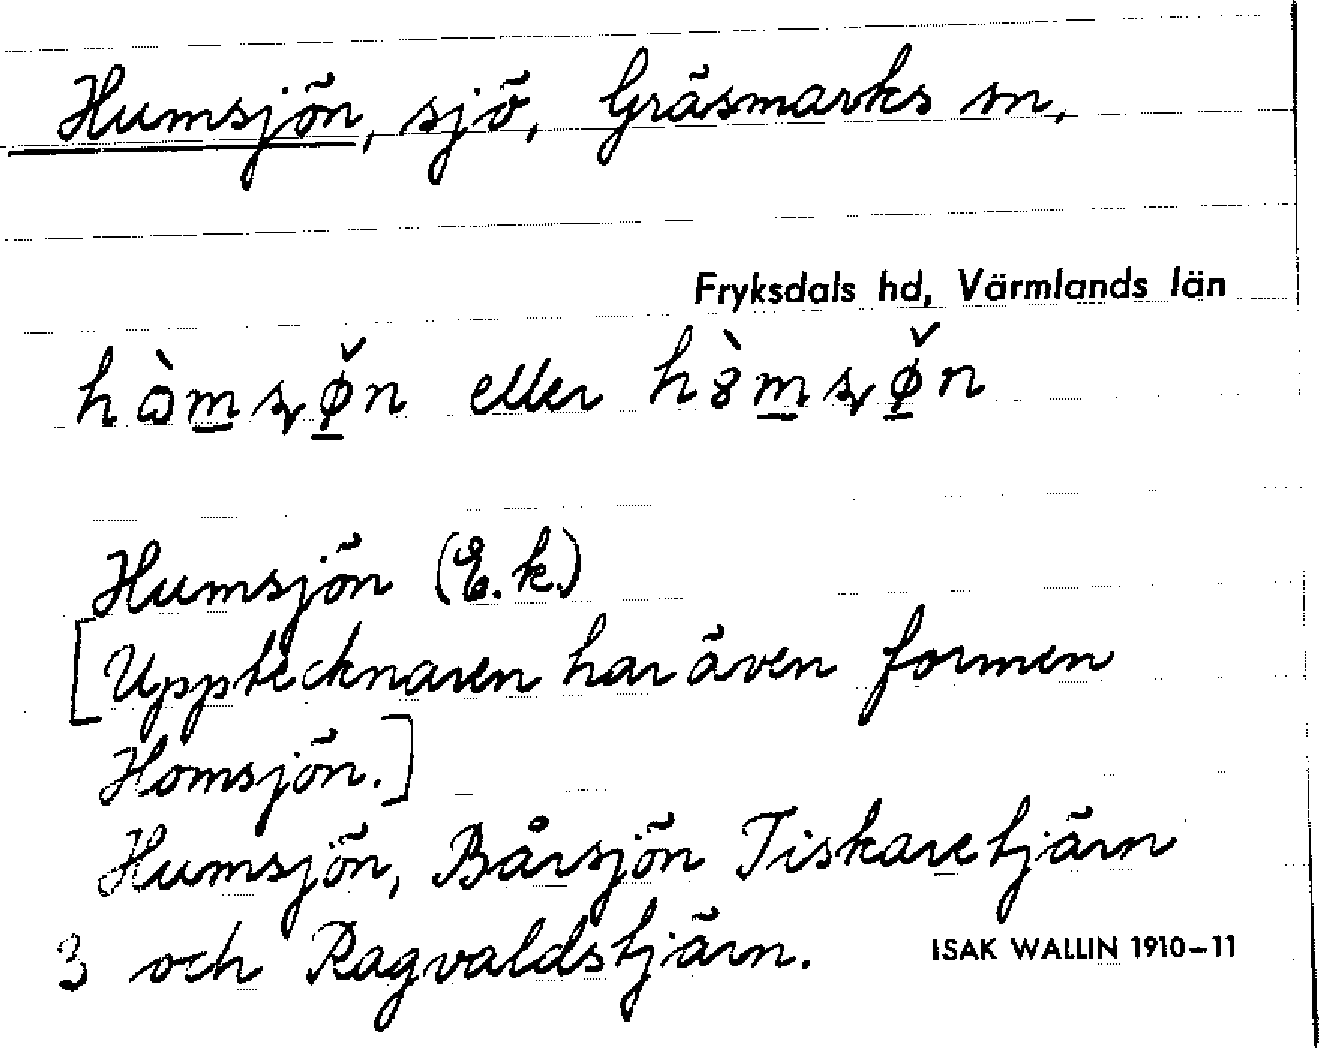 Humsjön, sjö, Gräsmarks sn,
Fryksdals hd, Värmlands län
eller
Humsjön (E.k.)
[Upptecknaren har även formen
Homsjön.]
Humsjön, Bårsjön Tiskaretjärn
3 och Ragvaldstjärn.
ISAK WALLIN 1910–11